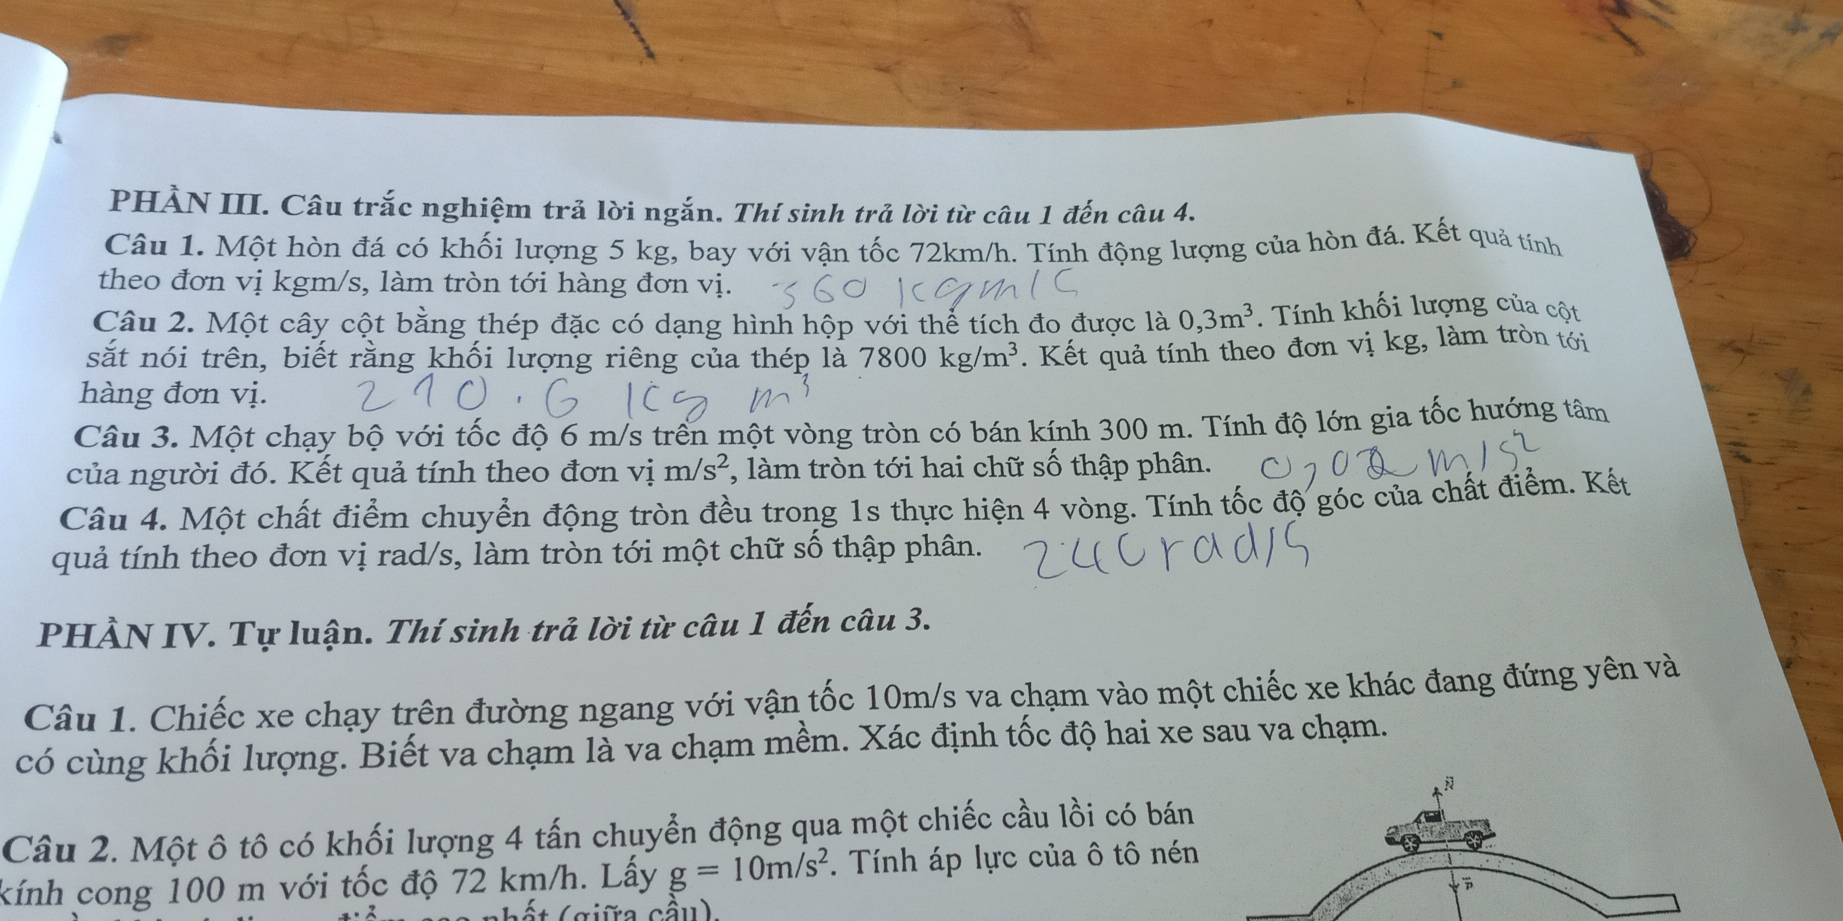 PHẦN III. Câu trắc nghiệm trả lời ngắn. Thí sinh trả lời từ câu 1 đến câu 4.
Câu 1. Một hòn đá có khối lượng 5 kg, bay với vận tốc 72km/h. Tính động lượng của hòn đá. Kết quả tính
theo đơn vị kgm/s, làm tròn tới hàng đơn vị. 360 kgm/s
Câu 2. Một cây cột bằng thép đặc có dạng hình hộp với thể tích đo được là 0,3m³. Tính khối lượng của cột
sắt nói trên, biết rằng khối lượng riêng của thép là 7800 kg/m³. Kết quả tính theo đơn vị kg, làm tròn tới
hàng đơn vị. 210.6 kg m³
Câu 3. Một chạy bộ với tốc độ 6 m/s trên một vòng tròn có bán kính 300 m. Tính độ lớn gia tốc hướng tâm
của người đó. Kết quả tính theo đơn vị m/s², làm tròn tới hai chữ số thập phân. 0,02 m/s²
Câu 4. Một chất điểm chuyển động tròn đều trong 1s thực hiện 4 vòng. Tính tốc độ góc của chất điểm. Kết
quả tính theo đơn vị rad/s, làm tròn tới một chữ số thập phân. 240 rad/s
PHẦN IV. Tự luận. Thí sinh trả lời từ câu 1 đến câu 3.
Câu 1. Chiếc xe chạy trên đường ngang với vận tốc 10m/s va chạm vào một chiếc xe khác đang đứng yên và
có cùng khối lượng. Biết va chạm là va chạm mềm. Xác định tốc độ hai xe sau va chạm.
Câu 2. Một ô tô có khối lượng 4 tấn chuyển động qua một chiếc cầu lồi có bán
kính cong 100 m với tốc độ 72 km/h. Lấy g = 10m/s². Tính áp lực của ô tô nén
nhất (giữa cầu).
N
P